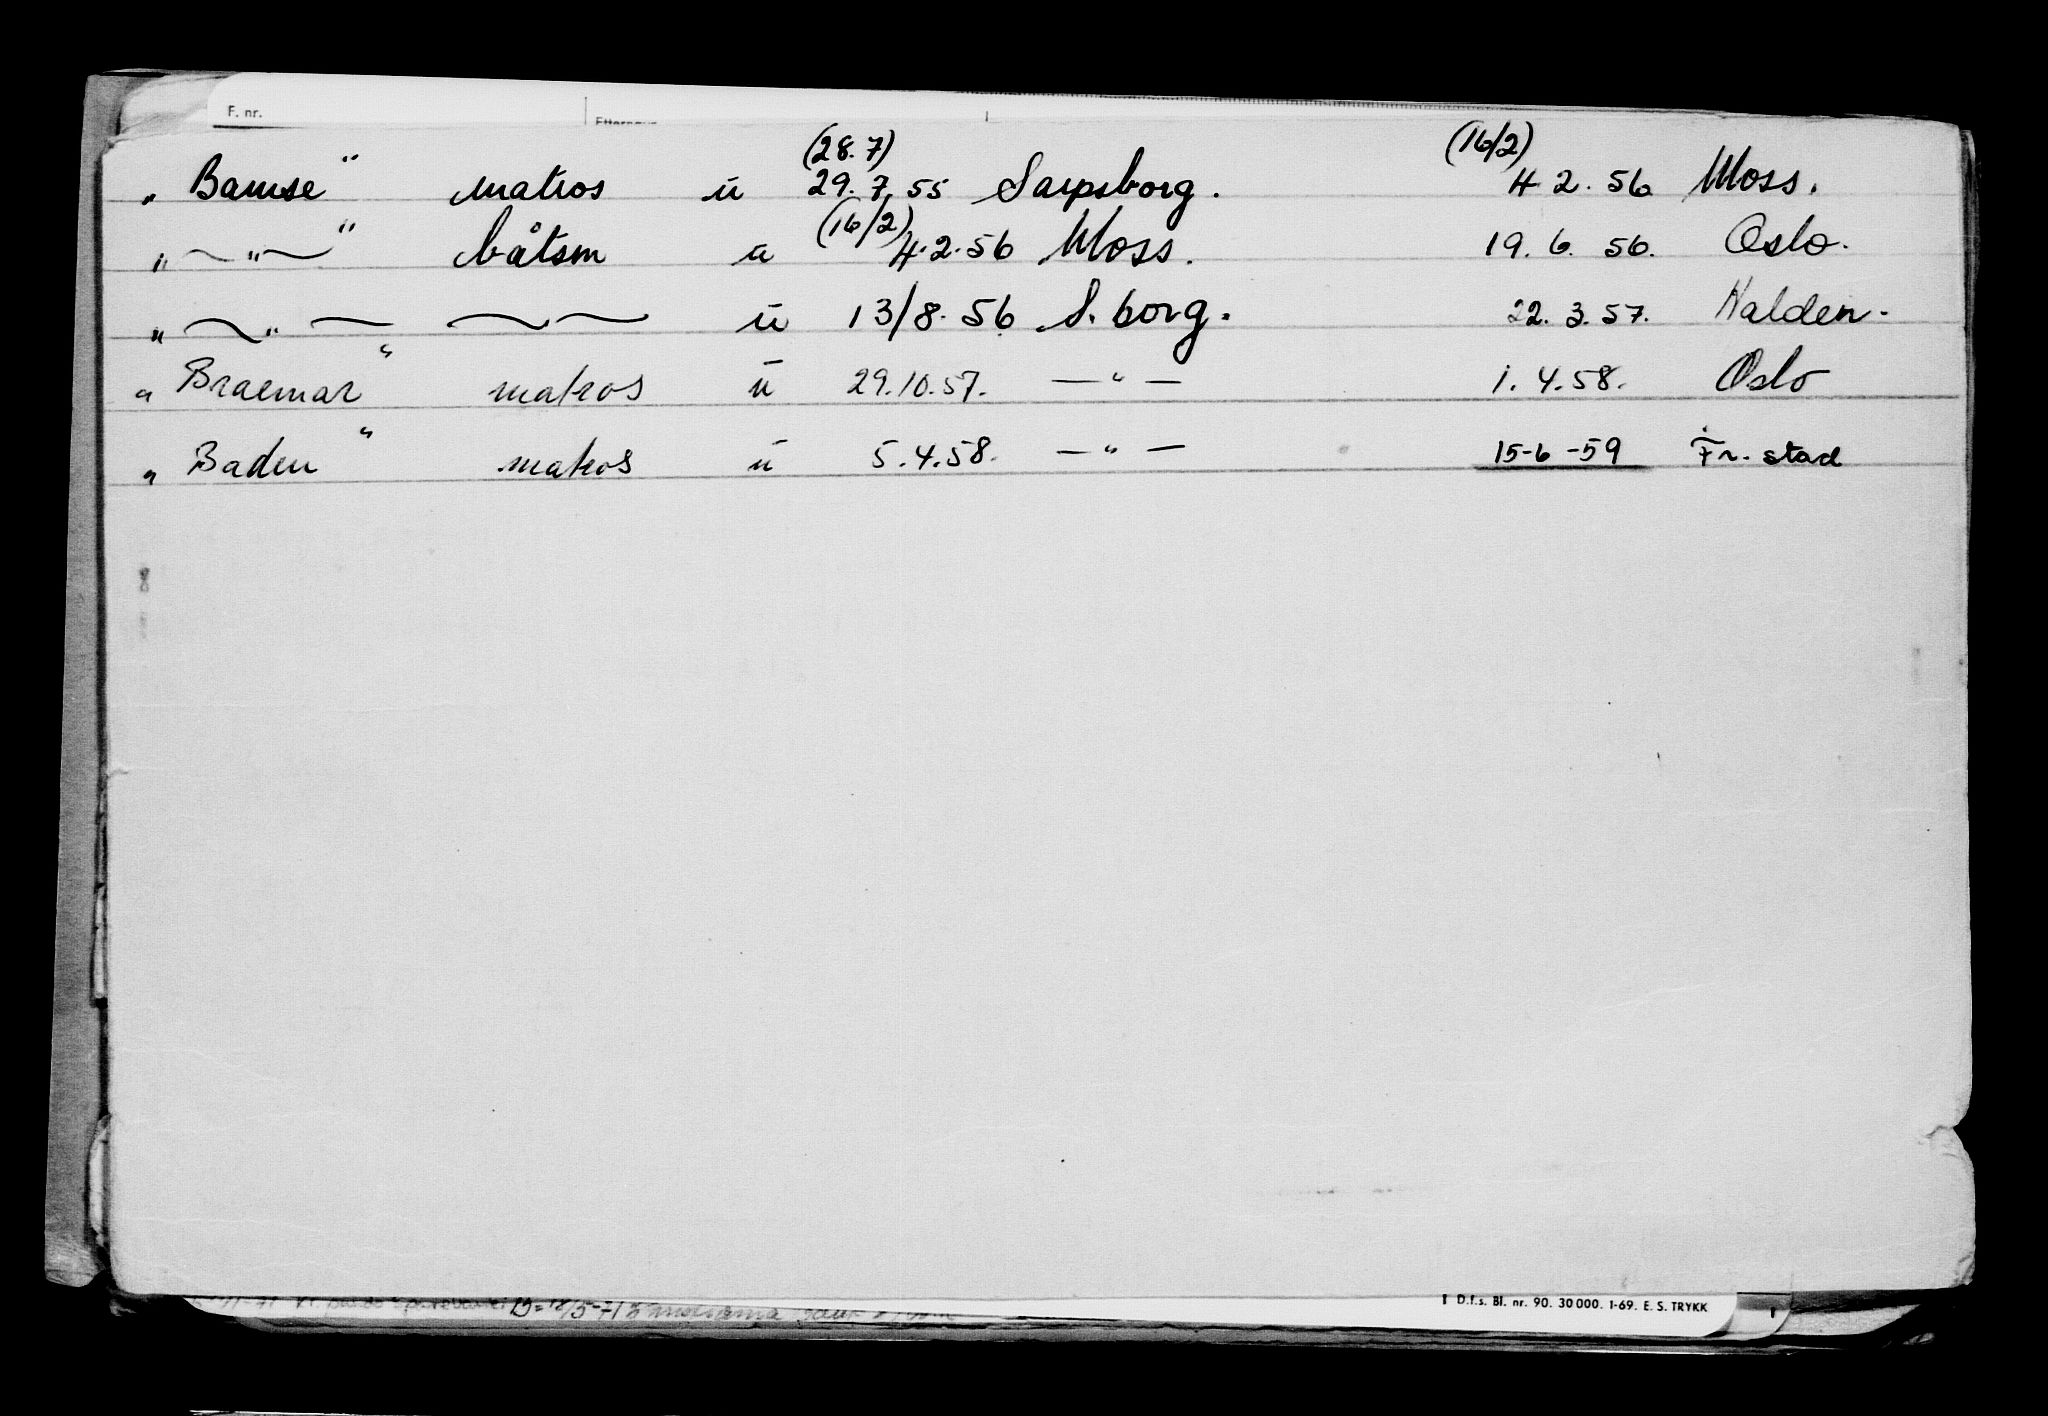 F. nr.
Etternavn
(28.7) (16/2)
„ Bamse " matros u 29.7.55 Sarpsborg. 4 2. 56 Moss.
„ — " — " båtsm u (16/2) 4.2.56 Moss. 19. 6. 56. Oslo.
„ — " — — — u 13/8. 56 S. borg. 22. 3. 57. Halden.
„ Braemar " matros u 29.10.57. — " — 1. 4. 58. Oslo
„ Baden " matros u 5.4.58. — " — 15-6-59 Fr. stad
D.f.s. Bl. nr. 90. 30 000. 1-69. E. S. TRYKK